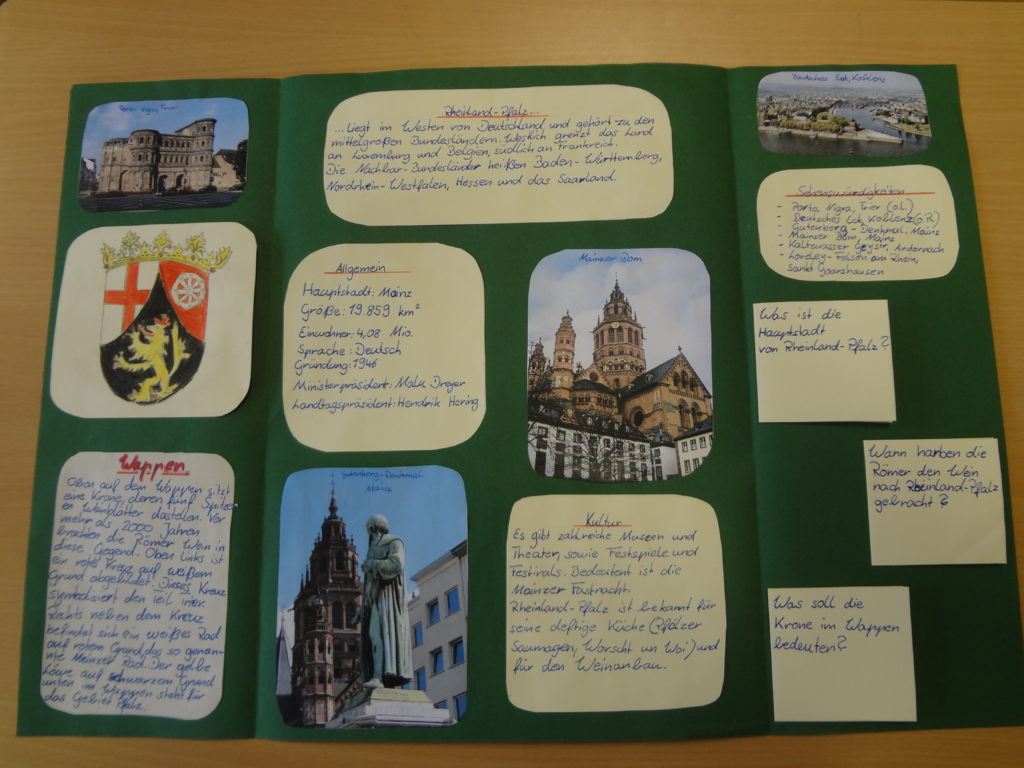 Porta Nigra, Trier
Wappen
Oben auf dem Wappen sitzt
eine Krone, deren fünf Spitzen
Weinblätter darstellen. Vor
mehr als 2000 Jahren
brachten die Römer Wein in
diese Gegend. Oben links ist
ein rotes Kreuz auf weißem
Grund abgebildet. Dieses Kreuz
symbolisiert den Teil
Rechts neben dem Kreuz
befindet sich ein weißes Rad
auf rotem Grund, das so genan-
nte Mainzer Rad. Der gelbe
Löwe auf schwarzem Grund
unten im Wappen steht für
das Gebiet Pfalz.
Rheinland-Pfalz...
...liegt im Westen von Deutschland und gehört zu den
mittelgroßen Bundesländern. Westlich grenzt das Land
an Luxemburg und Belgien, südlich an Frankreich.
Die Nachbar-Bundesländer heißen Baden-Württemberg,
Nordrhein-Westfalen, Hessen und das Saarland.
Allgemein
Hauptstadt: Mainz
Größe: 19.859 km²
Einwohner: 4,08 Mio.
Sprache: Deutsch
Gründung: 1946
Ministerpräsident: Malu Dreyer
Landtagspräsident: Hendrik Hering
Gutenberg-Denkmal
Mainz
Mainzer Dom
Kultur
Es gibt zahlreiche Museen und
Theater, sowie Festspiele und
Festivals. Bedeutent ist die
Mainzer Fastnacht.
Rheinland-Pfalz ist bekannt für
seine deftige Küche (Pfälzer
Saumagen, Worscht un Woi) und
für den Weinanbau.
Deutsches Eck, Koblenz
Sehenswürdigkeiten
- Porta Nigra, Trier (o.L.)
- Deutsches Eck, Koblenz (o.R)
- Gutenberg-Denkmal, Mainz
- Mainzer Dom, Mainz
- Kaltwasser Geysir, Andernach
- Loreley-Felsen am Rhein,
Sankt Goarshausen
Was ist die
Hauptstadt
von Rheinland-Pfalz?
Wann harben die
Römer den Wein
nach Rheinland-Pfalz
gebracht?
Was soll die
Krone im Wappen
bedeuten?